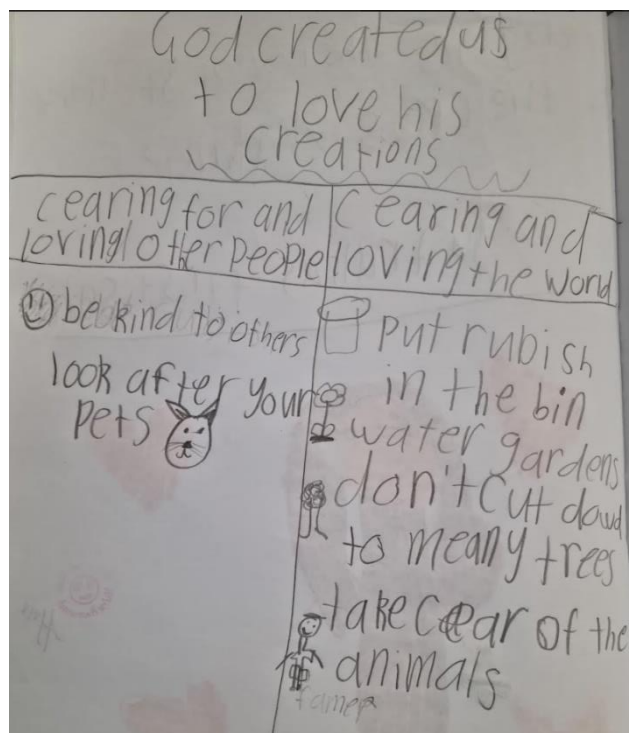 God created us
to love his
creations
cearing for and
loving other people
cearing and
loving the world
be kind to others
look after your
pets
put rubish
in the bin
water gardens
don't cut down
to meany trees
take cear of the
animals